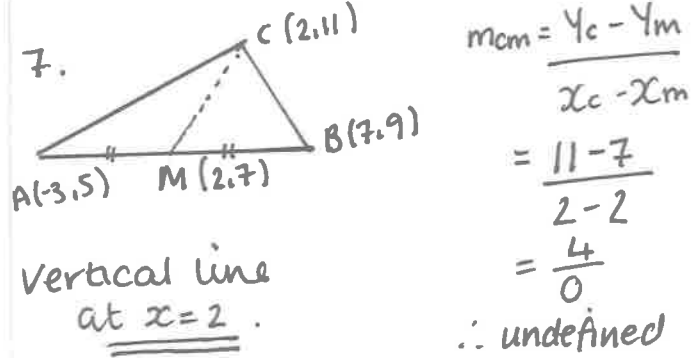 7.
C (2,11)
B(7,9)
A(-3,5)
M (2,7)
vertical line
at x = 2.
mcm = Yc - Ym
xc - xm
= 11-7
2-2
= 4
0
∴ undefined